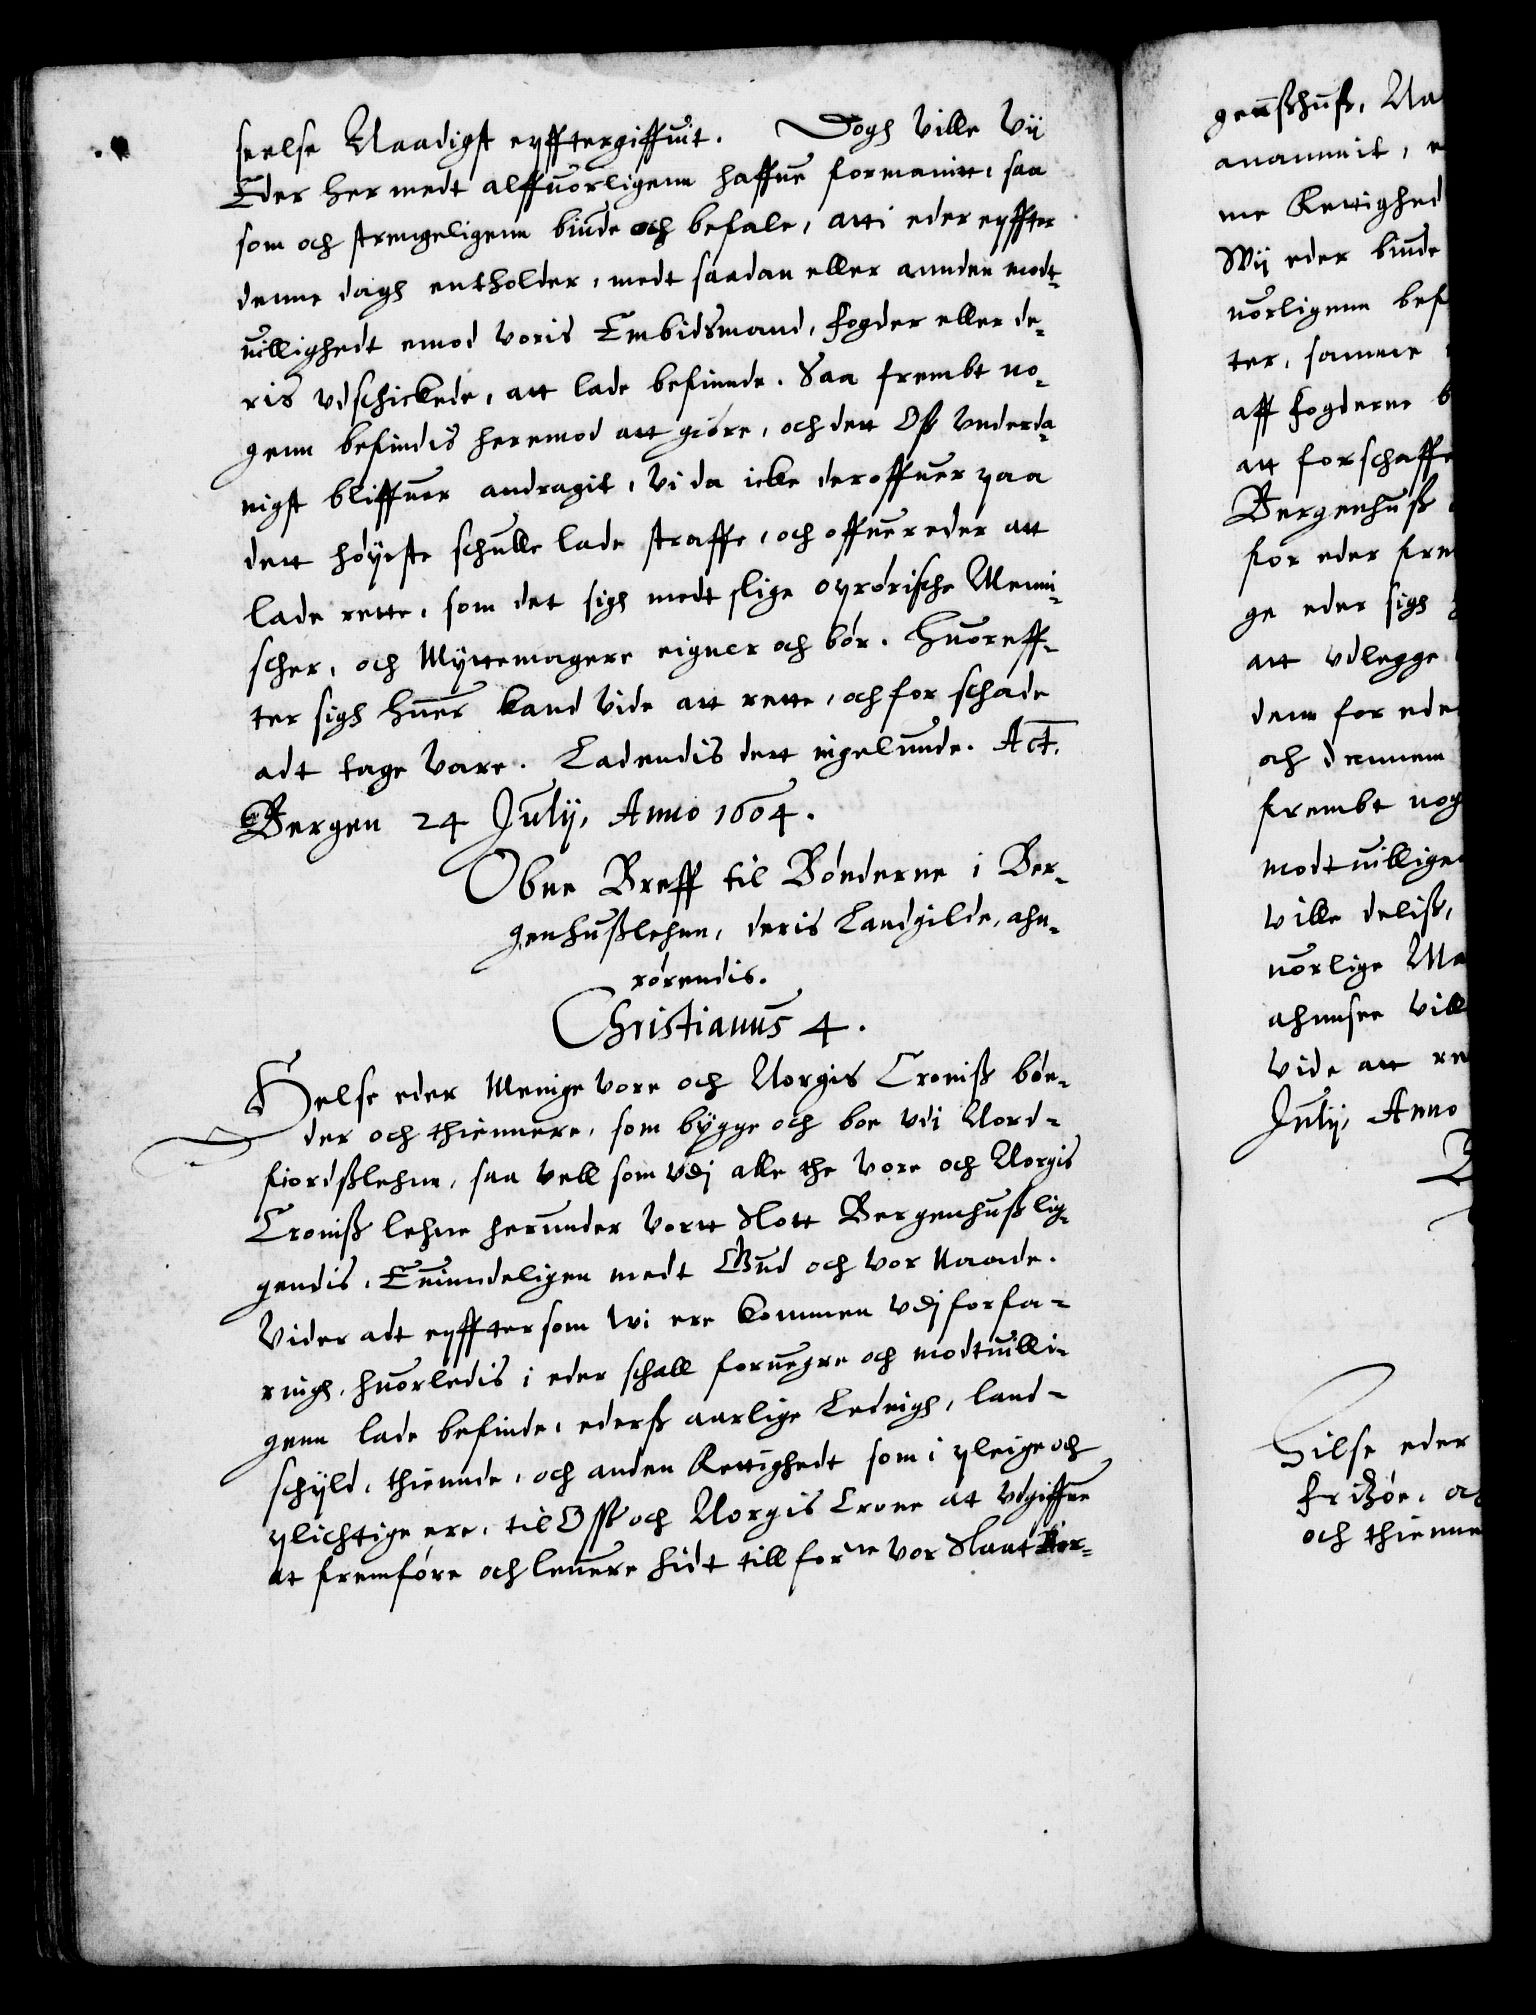 seelse Naadigst epfftergiffuit. Dogh ville vij
Eder her medt alffuorligenn haffue formanitt, saa
som och strengeligenn biude och befale, atti eder epffter
denne dagh entholder, medt saadan eller annden modt¬
uillighedt emod voris Embidsmand, fogder eller de¬
ris vdschickede, att lade befinnde. Saa frembt no¬
genn befindis heremod att giöre, och dett Oß vnderda¬
nigst bliffuer andragit, vi da icke deroffuer paa
dett höyeste schulle lade straffe, och offuer eder att
lade rette, som det sigh medt slige oprörische Menni¬
scher, och Myttemagere eigner och bör. Huoreff¬
ter sigh huer kand vide att rette, och for schade
adt tage vare. Ladendis dett ingelunde. Act.
Bergen 24 Julij, Anno 1604.
Obne Breff til Bönderne i Ber¬
genhußlehnn, deris Landgilde, ahn¬
rörendis.
Christianus 4.
Helse eder Menige vore och Norgis Croniß bön¬
der och thiennere, som bygge och boe vdi Nord¬
fiordßlehnn, saa vell som vdj alle the vore och Norgis
Croniß lehne herunder vortt Slott Bergenhuß lig¬
gendis, Euindeligen medt Gud och vor Naade.
Vider adt epffter som wi ere kommen vdj forfa¬
ringh, huorledis i eder schall foruegre och modtuilli¬
genn lade befinde, ederß aarlige Ledingh, land¬
schyld, thiennde, och anden Rettighedt som i pleige och
plichtige ere, til Oss och Norgis Crone at vdgiffue
at fremföre och leuere hidt till forne vor Slaat Ber¬
genßhuß, Na
anammit, e
me Rettighed
Wij eder biude
uorligenn bef
ter, samme
aff fogderne b
att forschaffe
Bergenhuß
for eder fre
ge eder sigh
att vdlegge
dem for ede
och dennem
frembt nog
modtuillige
ville deliß,
uorlige Ma
ahnnsee vill
vide att re
Julij, Anno
Hilse eder
fridzöe, oc
och thienne